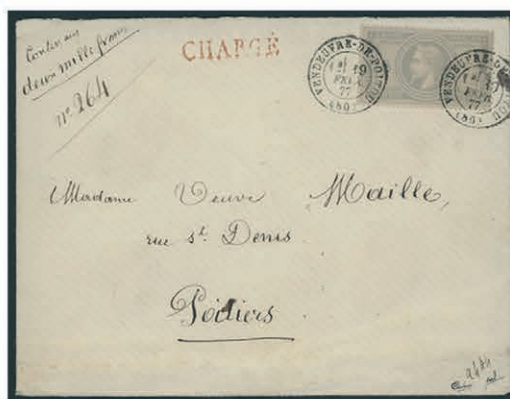 Contenant
deux mille francs
n° 264
CHARGÉ
VENDEUVRE-DE-POITOU
19
FEVR
77
VENDEUVRE-DE-POITOU
19
FEVR
77
Madame Veuve Maille,
rue St. Denis
Poitiers